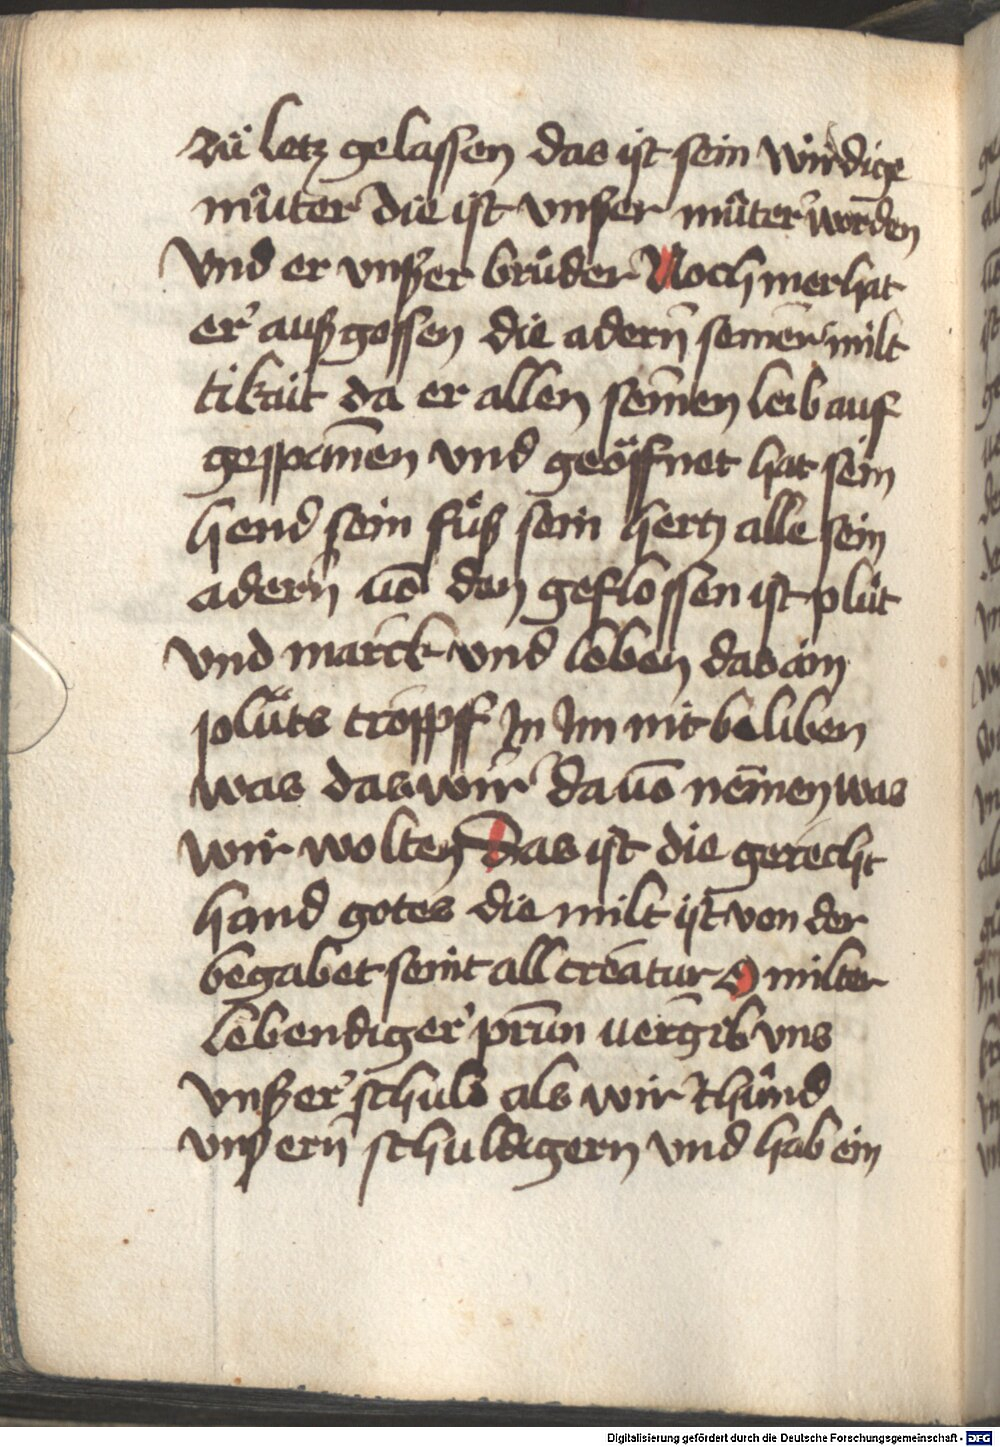 zuͤ letz gelassen das ist sein wirdige
muͦter die ist vnßer muͦter worden
Vnd er vnßer bruͦder Noch mer hat
er außgossen die adern seiner milt
tikait da er allen seinen leib auf
gespañen vnd geöffnet hat sein
hend sein fuͤß sein hertz alle sein
adern uō den geflossen ist pluͦt
vnd marck vnd leben das ain
pluͦts tropff In Im nit beliben
was das wir dauō nemen was
wir wolten Das ist die gerecht
hand gotes die milt ist von der
begabet seint all creatur O milter
lebendiger prun uergib vns
vnßer schuld als wir thuͦnd
vnßern schuldigern vnd hab ein
Digitalisierung gefördert durch die Deutsche Forschungsgemeinschaft - DFG